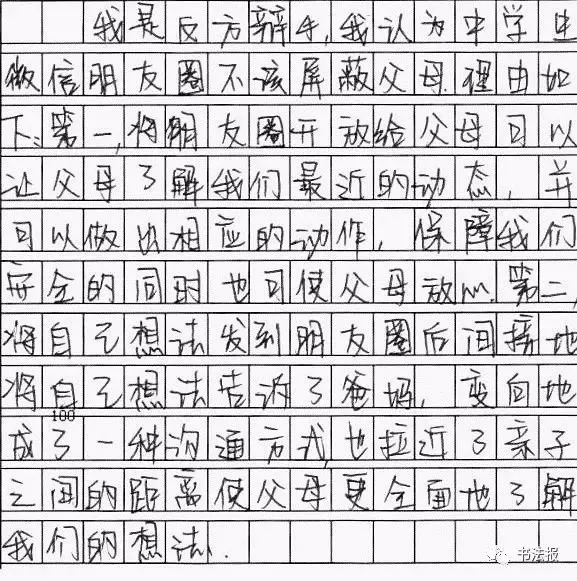 我是反方辩手,我认为中学生
微信朋友圈不该屏蔽父母.理由如
下:第一,将朋友圈开放给父母可以
让父母了解我们最近的动态,并
可以做出相应的动作,保障我们
安全的同时也可使父母放心.第二,
将自己想法发到朋友圈后间接地
将自己想法告诉了爸妈,变向地
100
成了一种沟通方式,也拉近了亲子
之间的距离使父母更全面地了解
我们的想法.
书法报